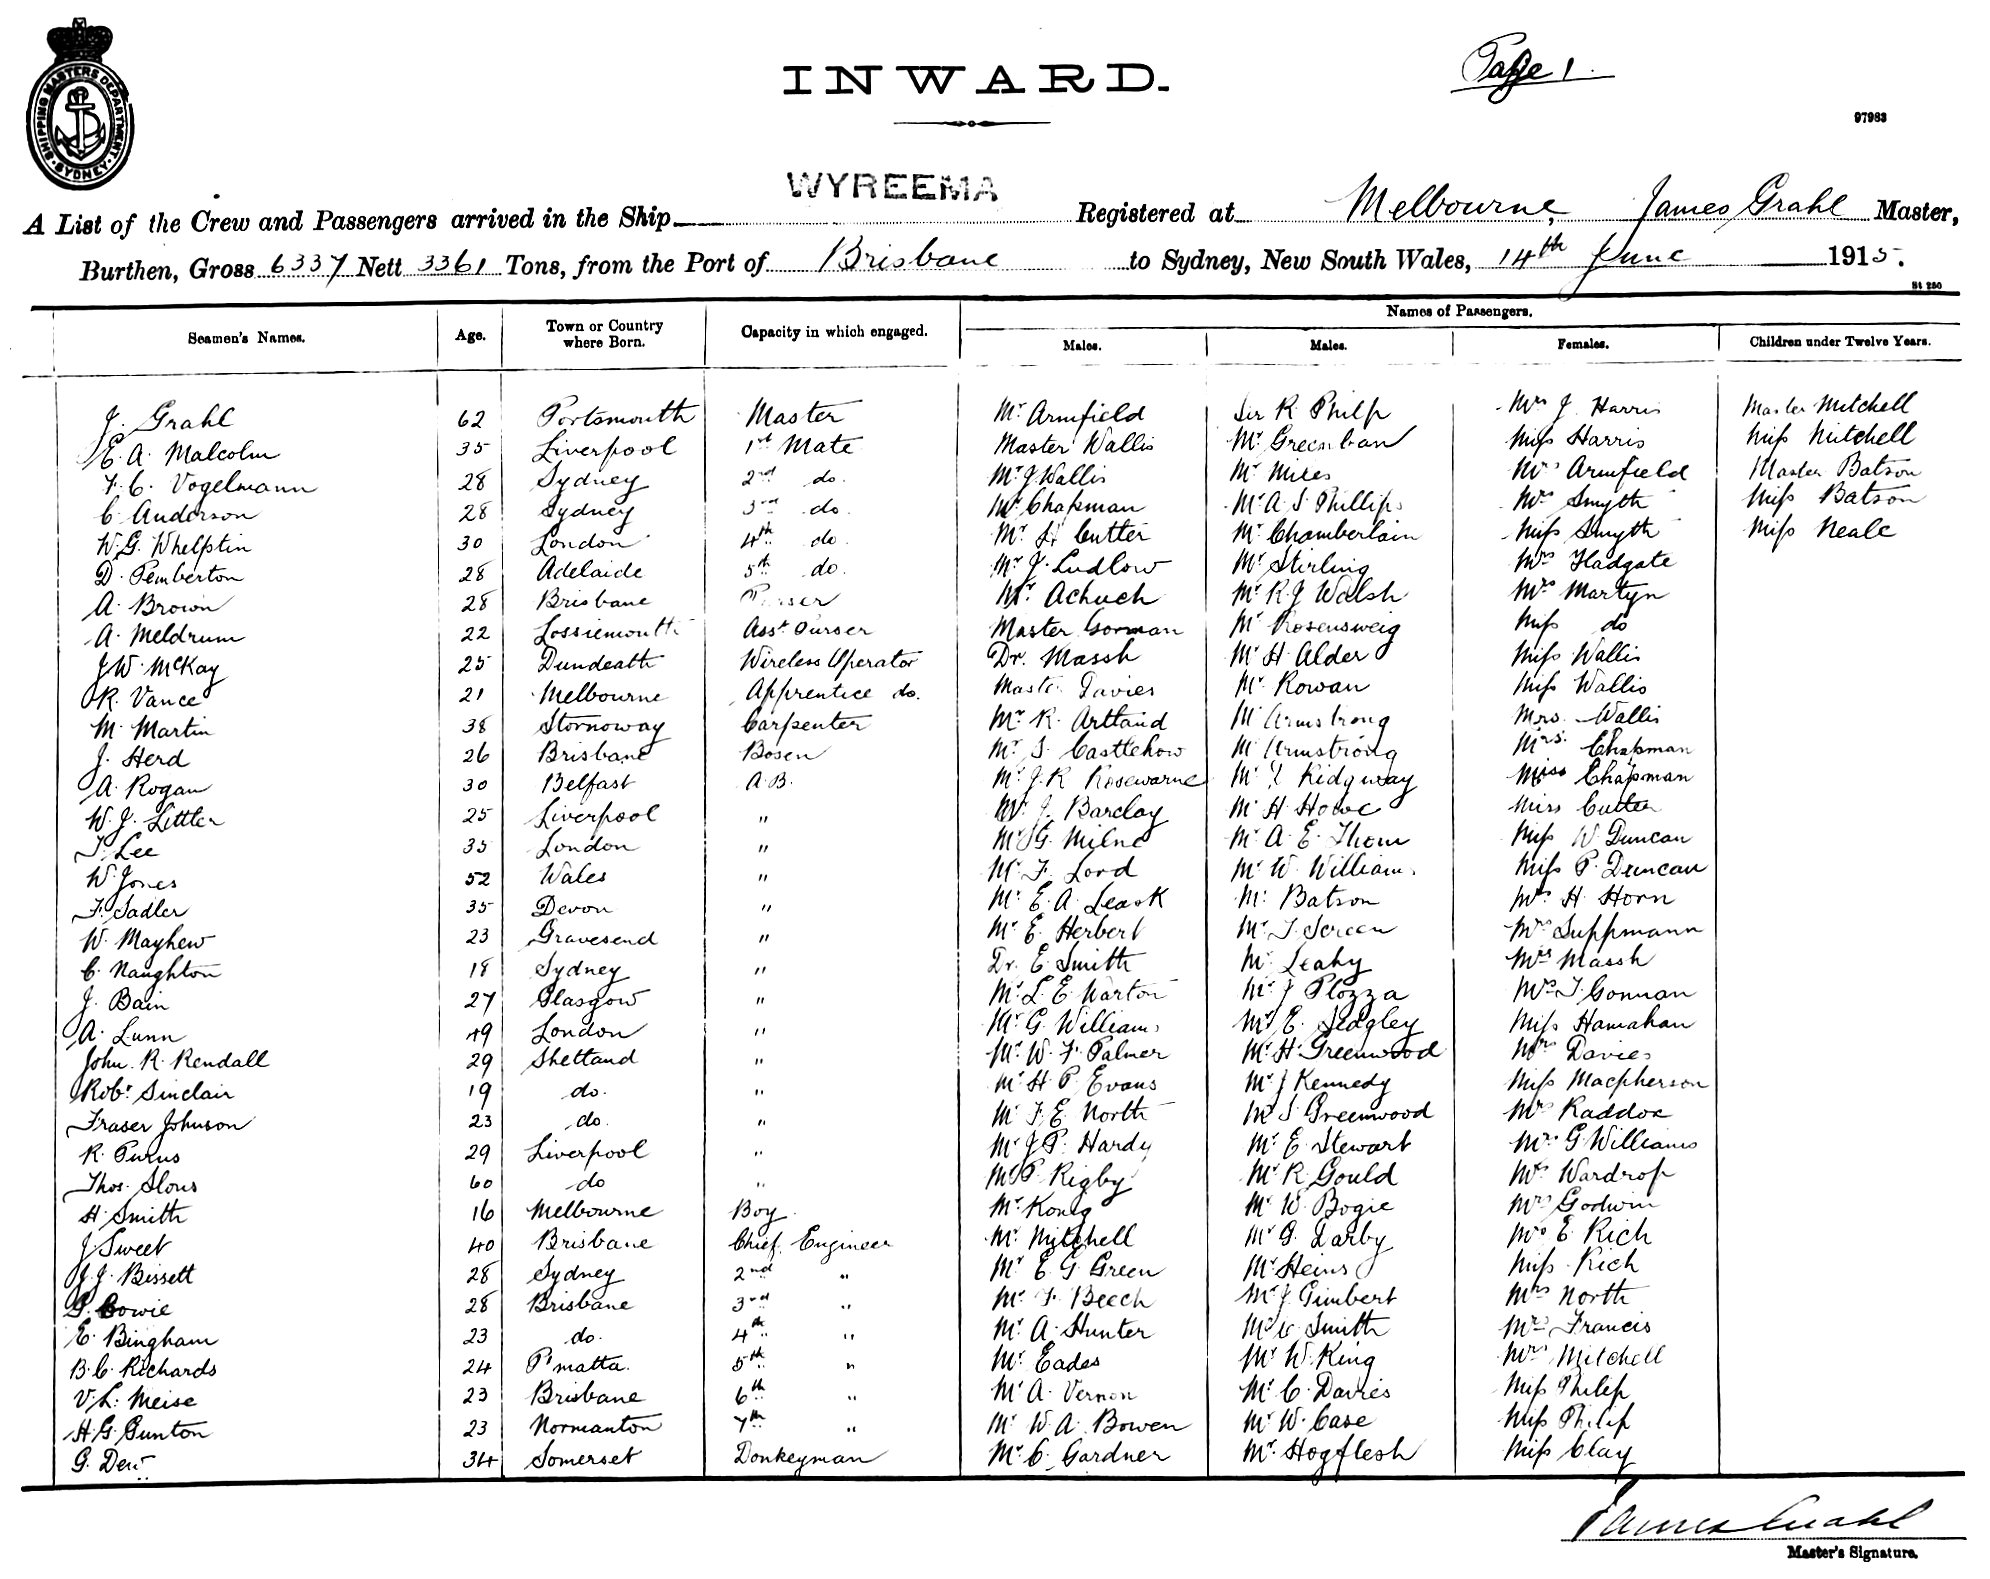 SHIPPING MASTERS DEPARTMENT · SYDNEY ·
INWARD.
Page 1.
97983
A List of the Crew and Passengers arrived in the Ship WYREEMA Registered at Melbourne, James Grahl Master,
Burthen, Gross 6337 Nett 3361 Tons, from the Port of Brisbane to Sydney, New South Wales, 14th June 1915.
St 250
Seamen's Names. Age. Town or Country where Born. Capacity in which engaged. Names of Passengers.
Males. Males. Females. Children under Twelve Years.
J. Grahl 62 Portsmouth Master Mr Armfield Sir R Philp Mrs J. Harris Master Mitchell
E. A. Malcolm 35 Liverpool 1st Mate Master Wallis Mr Greenban Miss Harris Miss Mitchell
F. C. Vogelmann 28 Sydney 2nd do. Mr J Wallis Mr Miles Mrs Armfield Master Batson
C. Anderson 28 Sydney 3rd do. Mr Chapman Mr A. S. Phillips Mrs Smyth Miss Batson
W. G. Whelptin 30 London 4th do. Mr H Cutter Mr Chamberlain Miss Smyth Miss Neale
D. Pemberton 28 Adelaide 5th do. Mr J. Ludlow Mr Stirling Mrs Hadgate
A. Brown 28 Brisbane Purser Mr Achuch Mr R. J Walsh Mrs Martyn
A. Meldrum 22 Lossiemouth Asst Purser Master Gorman Mr Rosensweig Miss do
J. W. McKay 25 Dundeath Wireless Operator Dr. Massh Mr H Alder Miss Wallis
R. Vance 21 Melbourne Apprentice do. Master Davies Mr Rowan Miss Wallis
M. Martin 38 Stornoway Carpenter Mr R. Artland Mr Armstrong Mrs. Wallis
J. Herd 26 Brisbane Bosen Mr S. Castlehow Mr Armstrong Mrs. Chapman
A. Rogan 30 Belfast A.B. Mr J. R Rosewarne Mr Ridgway Miss Chapman
W. J. Littler 25 Liverpool " Mr J. Barclay Mr H Howe Miss Cutter
T. Lee 35 London " Mr G. Milne Mr A. E. Thom Miss W Duncan
W. Jones 52 Wales " Mr F. Lord Mr W. Williams Miss P. Duncan
F. Sadler 35 Devon " Mr E. A. Leask Mr Batson Mrs H. Horn
W. Mayhew 23 Gravesend " Mr E. Herbert Mr T. Screen Mrs Suppmann
C. Naughton 18 Sydney " Dr. E. Smith Mr Leahy Mrs Massh
J. Bain 27 Glasgow " Mr L. E. Warton Mr J Plozza Mrs T. Gorman
A. Lunn 49 London " Mr G. Williams Mr E. Sedgley Miss Hanrahan
John. R. Rendall 29 Shetland " Mr W. F. Palmer Mr H. Greenwood Mrs Davies
Robt Sinclair 19 do. " Mr H. P. Evans Mr J Kennedy Miss Macpherson
Fraser Johnson 23 do. " Mr F. E. North Mr S Greenwood Mrs Raddox
R. Purus 29 Liverpool " Mr J. P. Hardy Mr E. Stewart Mrs G Williams
Thos. Slous 60 do " Mr P. Rigby Mr R Gould Mrs Wardrop
H. Smith 16 Melbourne Boy. Mr Konig Mr W. Bogie Mrs Godwin
J. Sweet 40 Brisbane Chief Engineer Mr Mitchell Mr G. Darby Mrs E. Rich
J. J. Bissett 28 Sydney 2nd " Mr E. G Green Mr Heins Miss Rich
G. Bowie 28 Brisbane 3rd " Mr F. Beech Mr J. Gimbert Mrs North
E. Bingham 23 do. 4th " Mr A. Hunter Mr C. Smith Mrs Francis
B. C. Richards 24 P'matta. 5th " Mr Eades Mr W. King Mrs Mitchell
V. L. Meise 23 Brisbane 6th " Mr A. Vernon Mr C. Davies Miss Philip
H. G. Gunton 23 Normanton 7th " Mr W. A. Bowen Mr W. Case Miss Philip
G. Dew 34 Somerset Donkeyman Mr C. Gardner Mr. Hogflesh Miss Clay
James Grahl
Master's Signature.